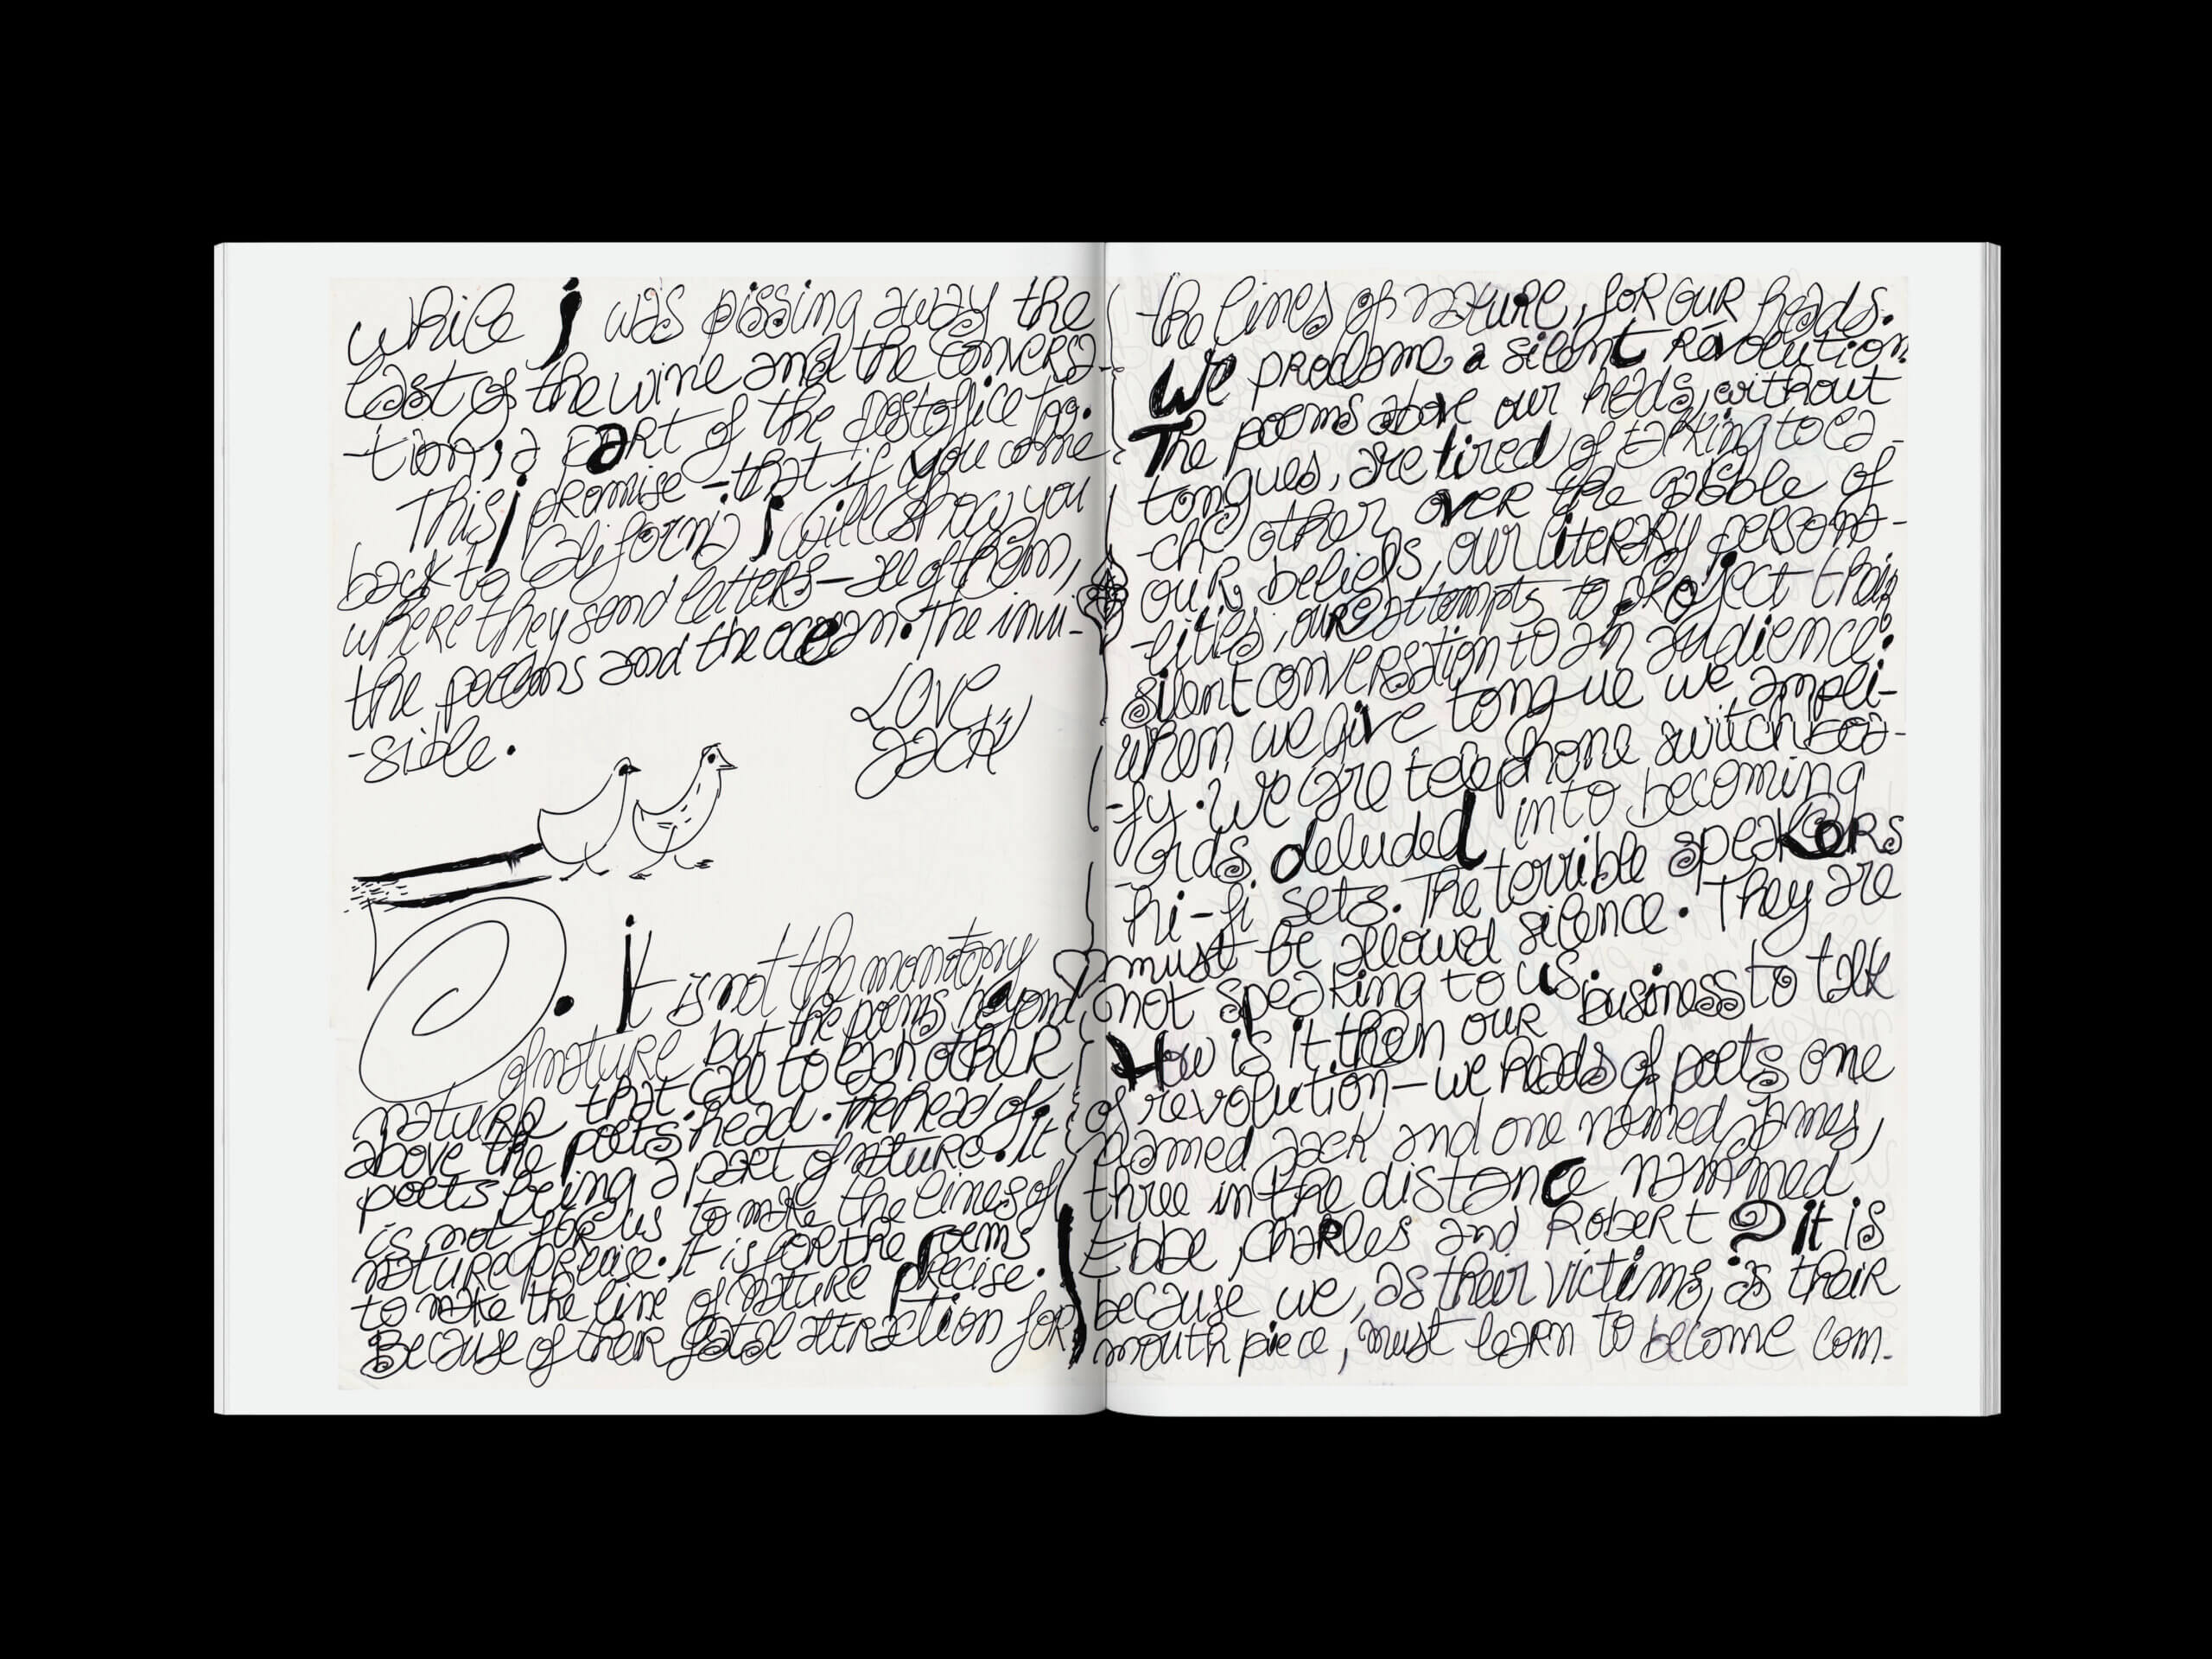 while j was pissing away the
last of the wine and the conversa-
-tion, a part of the postoffice too.
This j promise - that if you come
back to California j will show you
where they send letters - all of them,
the poems and the ocean. The invi-
-sible.
Love
Jack
5. it is not the monotony
of nature but the poems beyond
nature that call to each other
above the poets' head. The head of
poets being a part of nature. It
is not for us to make the lines of
nature precise. It is for the poems
to make the line of nature precise.
Because of their fatal attraction for
the lines of nature, for our heads.
We proclame a silent revolution
The poems above our heads, without
tongues, are tired of talking to ea-
-ch other over the gabble of
our beliefs, our literary persona-
-lities, our attempts to project their
silent conversation to an audience.
When we give tongue we ampli-
-fy. We are telephone switchboa-
-rds deluded into becoming
hi-fi sets. The terrible speakers
must be allowed silence. They are
not speaking to us.
How is it then our business to talk
of revolution — we heads of poets one
named Jack and one named James,
three in the distance nammed
Ebbe, Charles and Robert? it is
because we, as their victims, as their
mouth piece, must learn to become com-